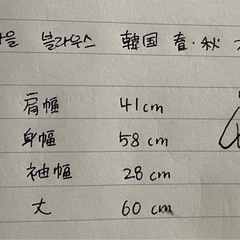 을 블라우스 韓国 春・秋
肩幅 41cm
身幅 58cm
袖幅 28cm
丈 60cm